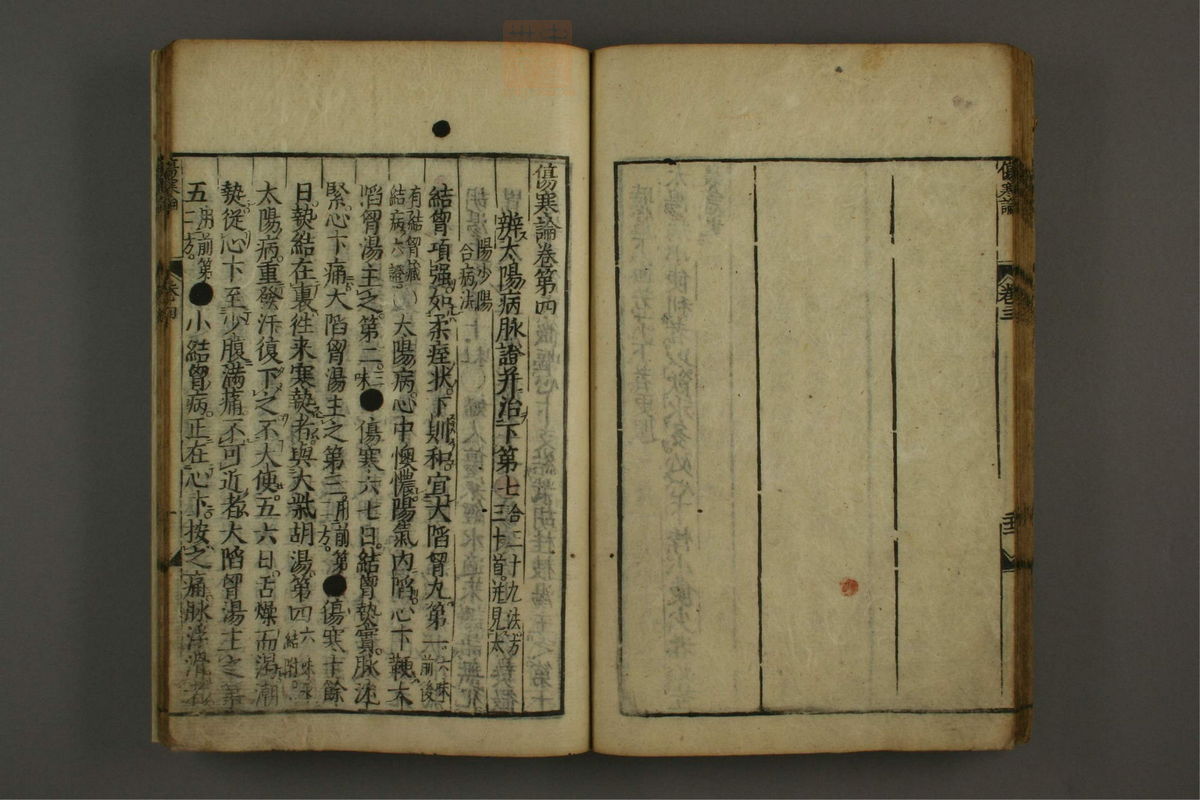 傷寒論
卷三
傷寒論卷第四
辨太陽病脉證并治下第七合三十九法方
三十首并見太
陽少陽
合病法
結胷項强如柔痓狀下則和宜大陷胷丸第一六味
前後
有結胷藏
結病六證
太陽病心中懊憹陽氣内陷心下鞕大
陷胷湯主之第二三味●傷寒六七日結胷熱實脉沈
緊心下痛大陷胷湯主之第三用前第二方●傷寒十餘
日熱結在裏往来寒熱者與大柴胡湯第四
太陽病重發汗復下之不大便五六日舌燥而渴潮
熱從心下至少腹滿痛不可近者大陷胷湯主之第
五用前第二方●小結胷病正在心下按之痛脉浮滑者
卷四